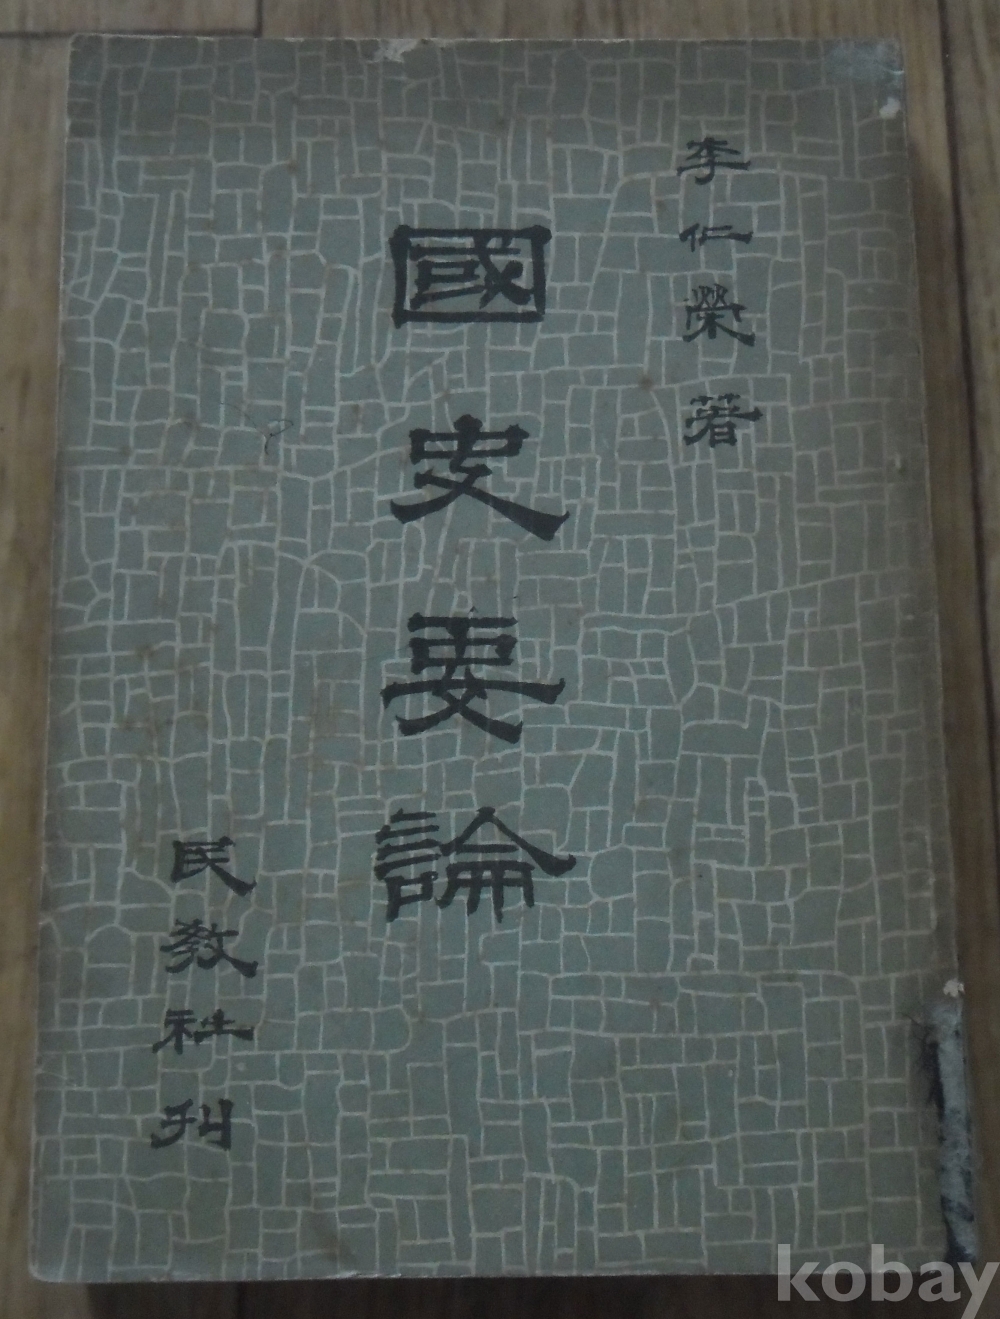 李仁榮 著
國史要論
民教社刊
kobay